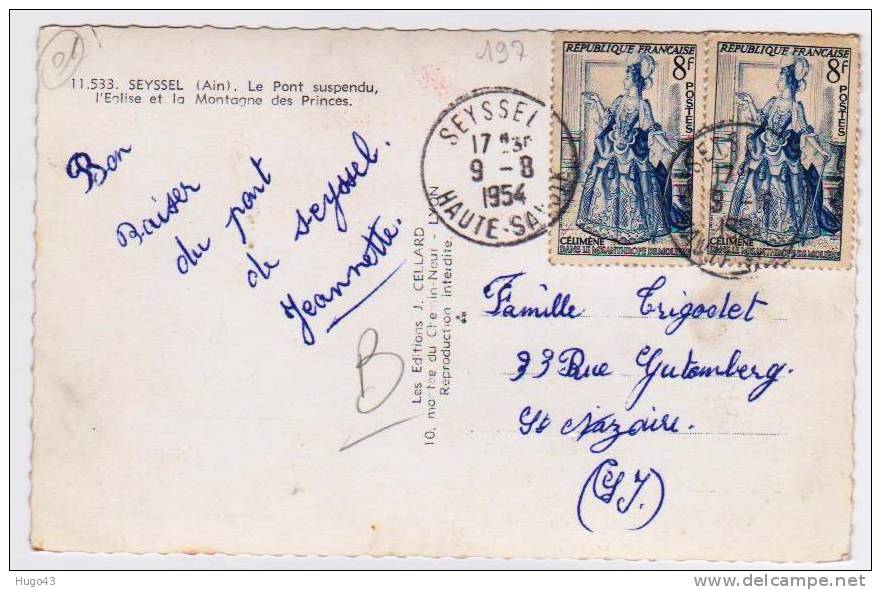 197
11.533. SEYSSEL (Ain). Le Pont suspendu,
l'Eglise et la Montagne des Princes.
Bon
Baiser
du pont
de Seyssel.
Jeannette.
B
Les Editions J. CELLARD
10, montée du Chemin-Neuf - LYON
Reproduction interdite
SEYSSEL
17
9 - 8
1954
HAUTE-SAVOIE
RÉPUBLIQUE FRANÇAISE
8f
POSTES
CÉLIMÈNE
DANS LE MISANTHROPE DE MOLIÈRE
RÉPUBLIQUE FRANÇAISE
8f
POSTES
CÉLIMÈNE
DANS LE MISANTHROPE DE MOLIÈRE
Famille Trigodet
33 Rue Gutemberg.
St Nazaire.
Hugo43
www.delcampe.net